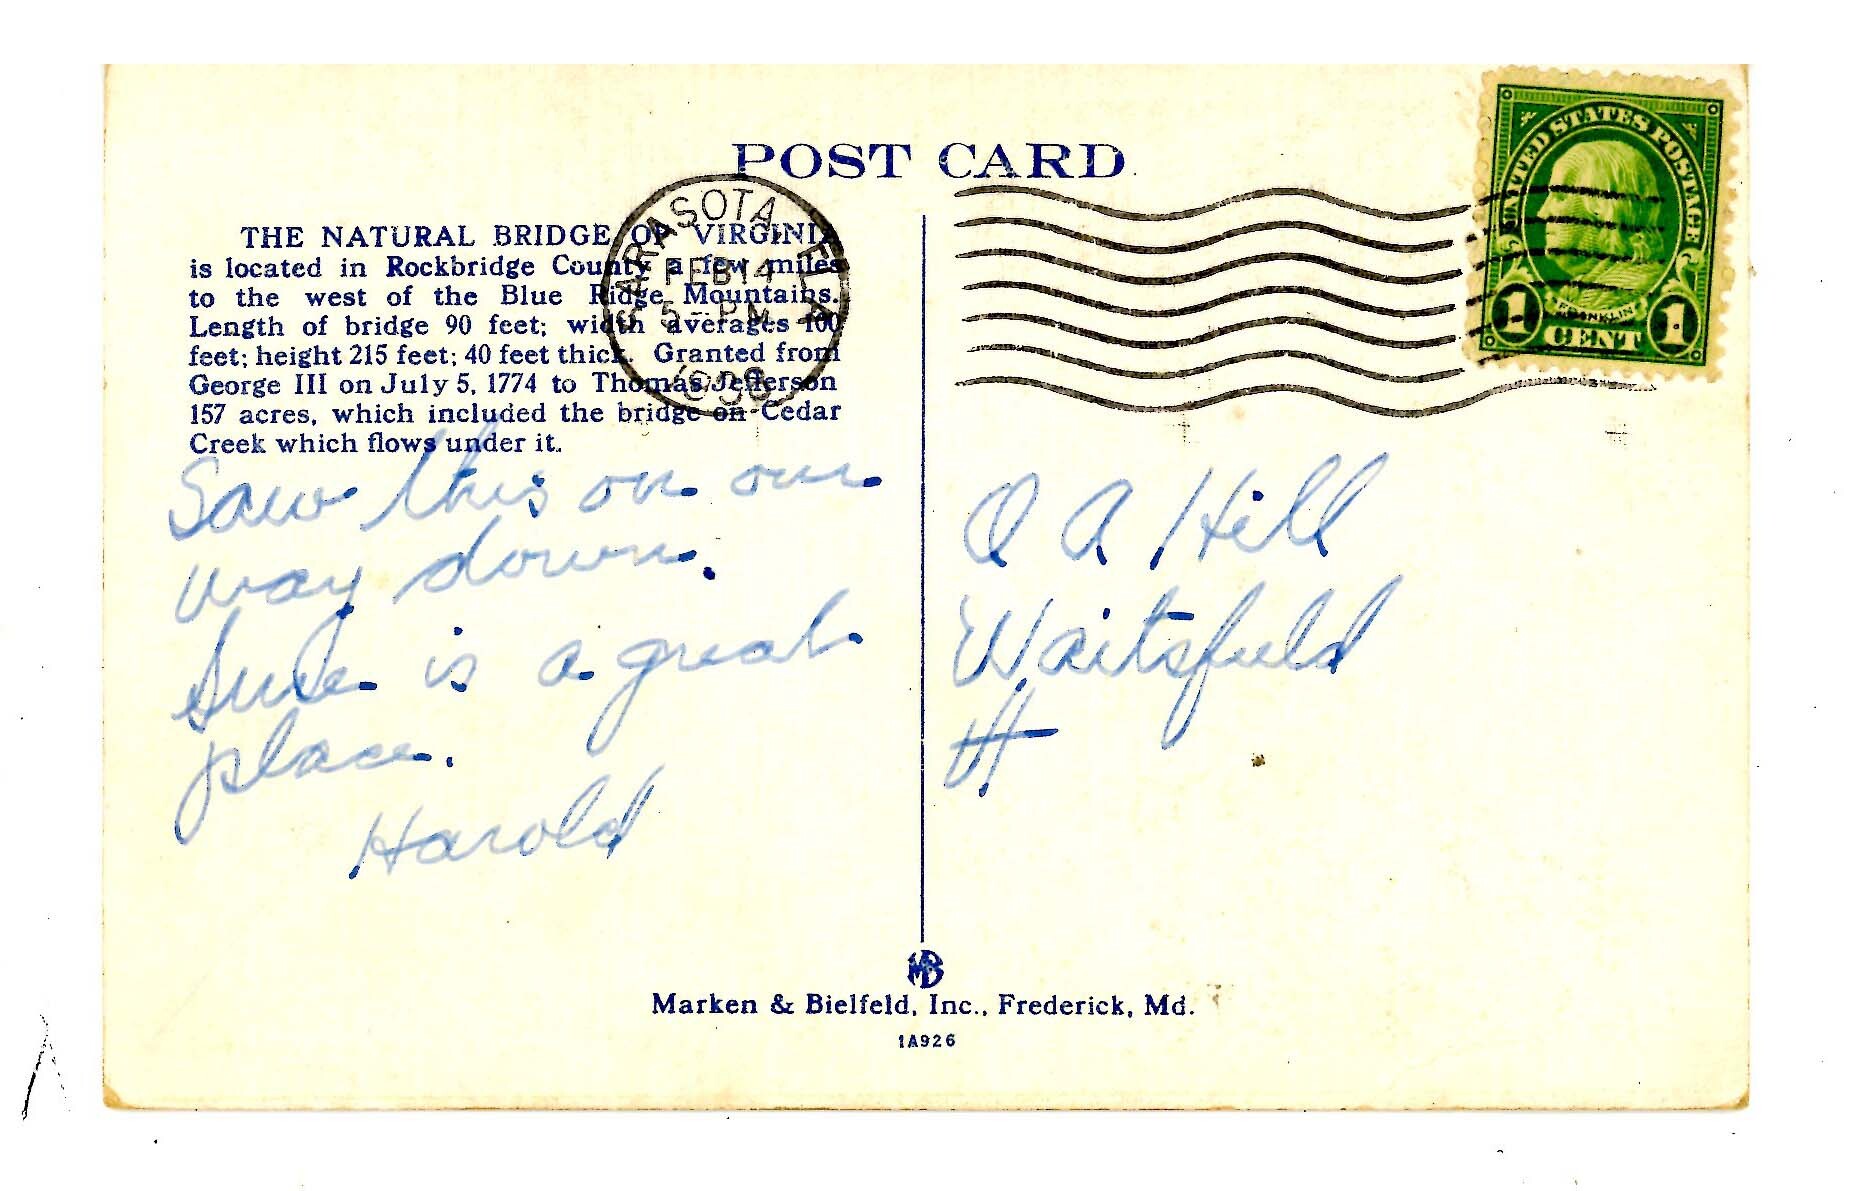 POST CARD
THE NATURAL BRIDGE OF VIRGINIA
is located in Rockbridge County a few miles
to the west of the Blue Ridge Mountains.
Length of bridge 90 feet; width averages 100
feet; height 215 feet; 40 feet thick. Granted from
George III on July 5, 1774 to Thomas Jefferson
157 acres, which included the bridge on Cedar
Creek which flows under it.
SARASOTA, FLA
FEB 14
5-PM
UNITED STATES POSTAGE
FRANKLIN
1 CENT 1
Saw this on our
way down.
Sure is a great
place.
Harold
O A Hill
Waitsfield
MB
Marken & Bielfeld, Inc., Frederick, Md.
1A926